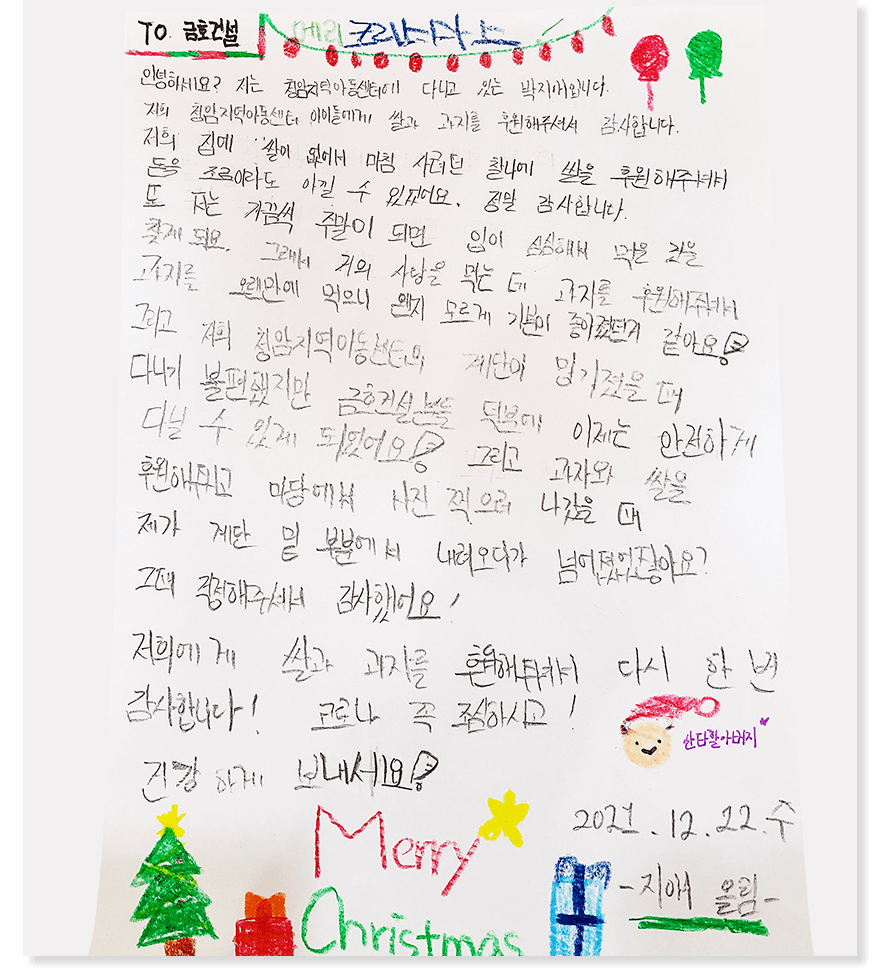 TO. 금호건설
메리 크리스마스
안녕하세요? 저는 청암지역아동센터에 다니고 있는 박지애입니다.
저희 청암지역아동센터 아이들에게 쌀과 과자를 후원해주셔서 감사합니다.
저희 집에 쌀이 없어서 마침 사려던 찰나에 쌀을 후원해주셔서
돈을 조금이라도 아낄 수 있었어요. 정말 감사합니다.
또 저는 가끔씩 주말이 되면 입이 심심해서 먹을 것을
찾게 되요. 그래서 거의 사탕을 먹는데 과자를 후원해주셔서
과자를 오랜만에 먹으니 왠지 모르게 기분이 좋아졌던거 같아요!
그리고 저희 청암지역아동센터의 계단이 망가졌을 때
다니기 불편했지만 금호건설분들 덕분에 이제는 안전하게
다닐 수 있게 되었어요! 그리고 과자와 쌀을
후원해주시고 마당에서 사진 찍으러 나갔을 때
제가 계단 밑 부분에서 내려오다가 넘어졌었잖아요?
그때 걱정해주셔서 감사했어요!
저희에게 쌀과 과자를 후원해주셔서 다시 한 번
감사합니다! 코로나 꼭 조심하시고!
산타할아버지
건강하게 보내세요!
2021.12.22.수
Merry
-지애 올림-
Christmas